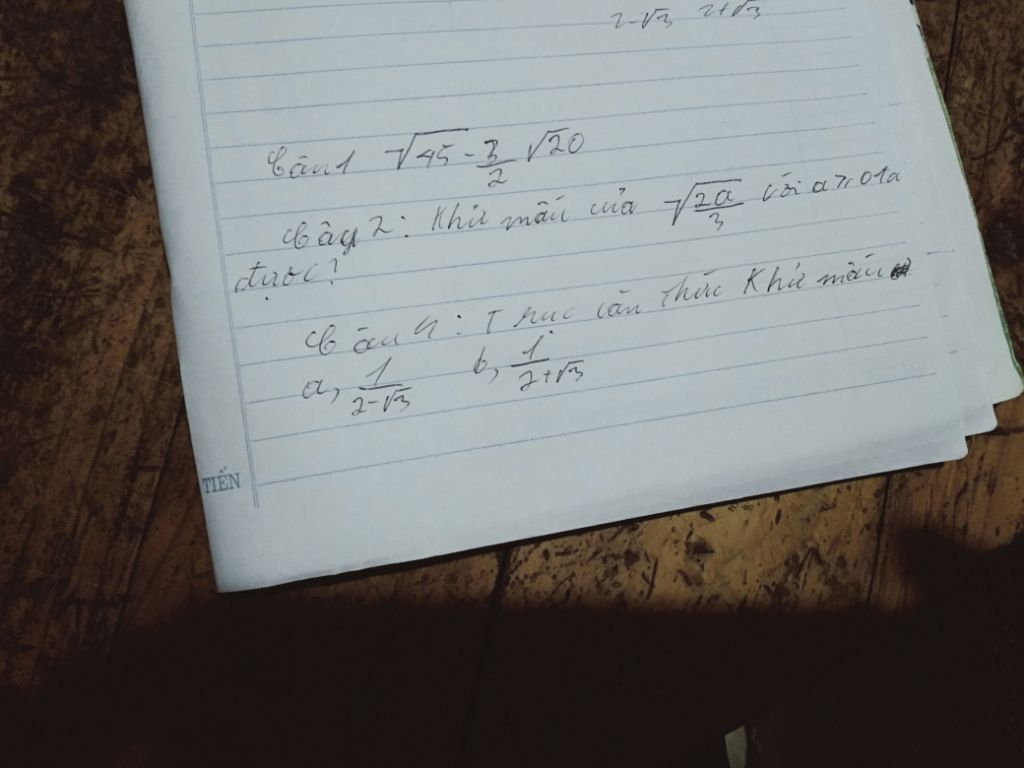 2-√3 2+√3
Câu 1 √45 - 3/2 √20
Câu 2: Khử mẫu của √(2a/3) với a ≥ 0 ta
được?
Câu 4: Trục căn thức Khử mẫu
a, 1/(2-√3) b, 1/(2+√3)
TIẾN